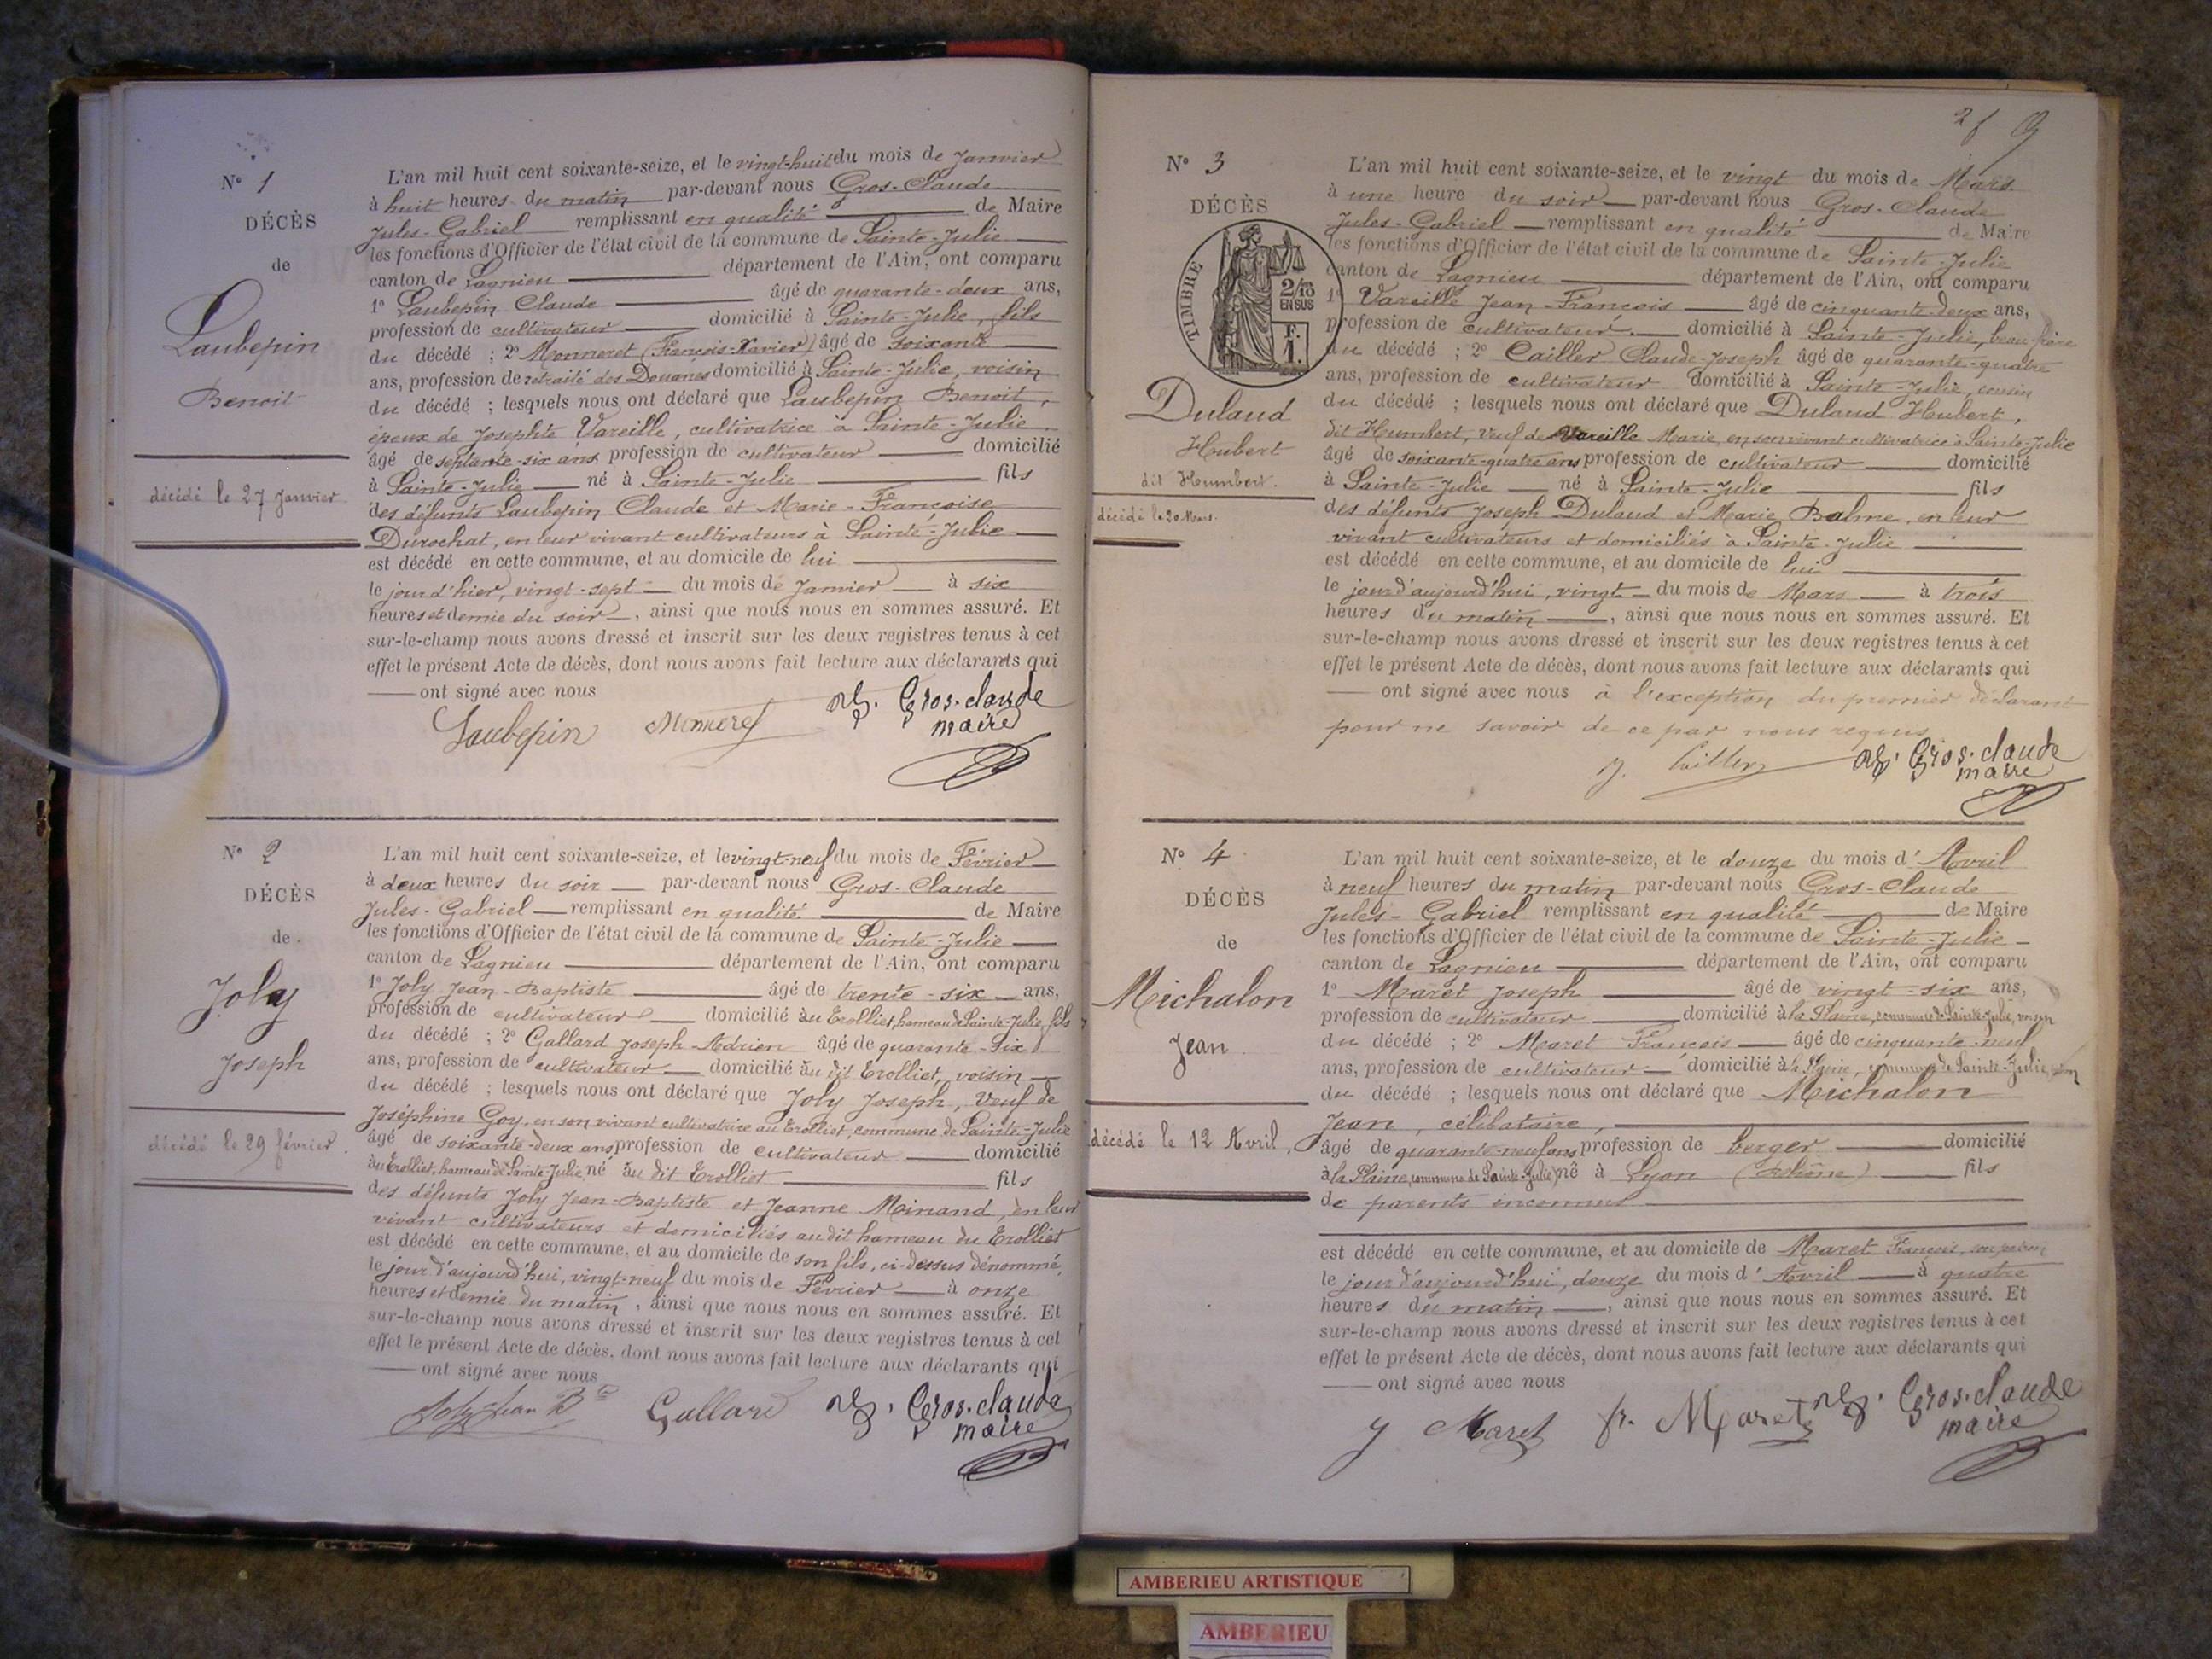 N° 1
DÉCÈS
de
Laubepin
Benoit
décédé le 27 Janvier
L'an mil huit cent soixante-seize, et le vingt-huit du mois de Janvier
à huit heures du matin par-devant nous Gros-Claude
Jules-Gabriel remplissant en qualité de Maire
les fonctions d'Officier de l'état civil de la commune de Sainte-Julie
canton de Lagnieu département de l'Ain, ont comparu
1° Laubepin Claude âgé de quarante-deux ans,
profession de cultivateur domicilié à Sainte-Julie, fils
du décédé ; 2° Monneret (François-Xavier) âgé de soixante
ans, profession de retraité des Douanes domicilié à Sainte-Julie, voisin
du décédé ; lesquels nous ont déclaré que Laubepin Benoit,
époux de Josephte Vareille, cultivatrice à Sainte-Julie
âgé de septante-six ans profession de cultivateur domicilié
à Sainte-Julie né à Sainte-Julie fils
des défunts Laubepin Claude et Marie-Francoise
Durochat, en leur vivant cultivateurs à Sainte-Julie
est décédé en cette commune, et au domicile de lui
le jour d'hier, vingt-sept du mois de Janvier à six
heures et demie du soir, ainsi que nous nous en sommes assuré. Et
sur-le-champ nous avons dressé et inscrit sur les deux registres tenus à cet
effet le présent Acte de décès, dont nous avons fait lecture aux déclarants qui
ont signé avec nous
Laubepin Monneret Gros-claude
maire
N° 2
DÉCÈS
de
Joly
Joseph
décédé le 29 février.
L'an mil huit cent soixante-seize, et le vingt-neuf du mois de Février
à deux heures du soir par-devant nous Gros-Claude
Jules-Gabriel remplissant en qualité de Maire
les fonctions d'Officier de l'état civil de la commune de Sainte-Julie
canton de Lagnieu département de l'Ain, ont comparu
1° Joly Jean-Baptiste âgé de trente-six ans,
profession de cultivateur domicilié au Trolliet, hameau de Sainte-Julie, fils
du décédé ; 2° Gallard Joseph-Adrien âgé de quarante-six
ans, profession de cultivateur domicilié au dit Trolliet, voisin
du décédé ; lesquels nous ont déclaré que Joly Joseph, veuf de
Joséphine Goy, en son vivant cultivatrice au Trolliet, commune de Sainte-Julie
âgé de soixante-deux ans profession de cultivateur domicilié
au Trolliet, hameau de Sainte-Julie né au dit Trolliet fils
des défunts Joly Jean-Baptiste et Jeanne Moinand, en leur
vivant cultivateurs et domiciliés audit hameau du Trolliet
est décédé en cette commune, et au domicile de son fils, ci-dessus dénommé,
le jour d'aujourd'hui, vingt-neuf du mois de Février à onze
heures et demie du matin, ainsi que nous nous en sommes assuré. Et
sur-le-champ nous avons dressé et inscrit sur les deux registres tenus à cet
effet le présent Acte de décès, dont nous avons fait lecture aux déclarants qui
ont signé avec nous
Joly Jean Bte Gallard Gros-claude
maire
2 f
N° 3
DÉCÈS
TIMBRE
2/10
EN SUS
F.
1.
Dulaud
Hubert
dit Humbert.
décédé le 20 Mars.
L'an mil huit cent soixante-seize, et le vingt du mois de Mars
à une heure du soir par-devant nous Gros-Claude
Jules-Gabriel remplissant en qualité de Maire
les fonctions d'Officier de l'état civil de la commune de Sainte-Julie
canton de Lagnieu département de l'Ain, ont comparu
1° Vareille Jean-François âgé de cinquante-deux ans,
profession de cultivateur domicilié à Sainte-Julie, beau-frère
du décédé ; 2° Cailler Claude-Joseph âgé de quarante-quatre
ans, profession de cultivateur domicilié à Sainte-Julie, cousin
du décédé ; lesquels nous ont déclaré que Dulaud Hubert,
dit Humbert, veuf de Vareille Marie, en son vivant cultivatrice à Sainte-Julie
âgé de soixante-quatre ans profession de cultivateur domicilié
à Sainte-Julie né à Sainte-Julie fils
des défunts Joseph Dulaud et Marie Balme, en leur
vivant cultivateurs et domiciliés à Sainte-Julie
est décédé en cette commune, et au domicile de lui
le jour d'aujourd'hui, vingt du mois de Mars à trois
heures du matin, ainsi que nous nous en sommes assuré. Et
sur-le-champ nous avons dressé et inscrit sur les deux registres tenus à cet
effet le présent Acte de décès, dont nous avons fait lecture aux déclarants qui
ont signé avec nous à l'exception du premier déclarant
pour ne savoir de ce par nous requis
Cailler Gros-claude
maire
N° 4
DÉCÈS
de
Michalon
Jean
décédé le 12 Avril,
L'an mil huit cent soixante-seize, et le douze du mois d'Avril
à neuf heures du matin par-devant nous Gros-Claude
Jules-Gabriel remplissant en qualité de Maire
les fonctions d'Officier de l'état civil de la commune de Sainte-Julie
canton de Lagnieu département de l'Ain, ont comparu
1° Maret Joseph âgé de vingt-six ans,
profession de cultivateur domicilié à la Plaine, commune de Sainte-Julie, voisin
du décédé ; 2° Maret François âgé de cinquante-neuf
ans, profession de cultivateur domicilié à la Plaine, commune de Sainte-Julie,
du décédé ; lesquels nous ont déclaré que Michalon
Jean, célibataire,
âgé de quarante-neuf ans profession de berger domicilié
à la Plaine, commune de Sainte-Julie, né à Lyon (Rhône) fils
de parents inconnus
est décédé en cette commune, et au domicile de Maret François,
le jour d'aujourd'hui, douze du mois d'Avril à quatre
heures du matin, ainsi que nous nous en sommes assuré. Et
sur-le-champ nous avons dressé et inscrit sur les deux registres tenus à cet
effet le présent Acte de décès, dont nous avons fait lecture aux déclarants qui
ont signé avec nous
J Maret fr. Maret Gros-claude
maire
AMBERIEU ARTISTIQUE
AMBERIEU